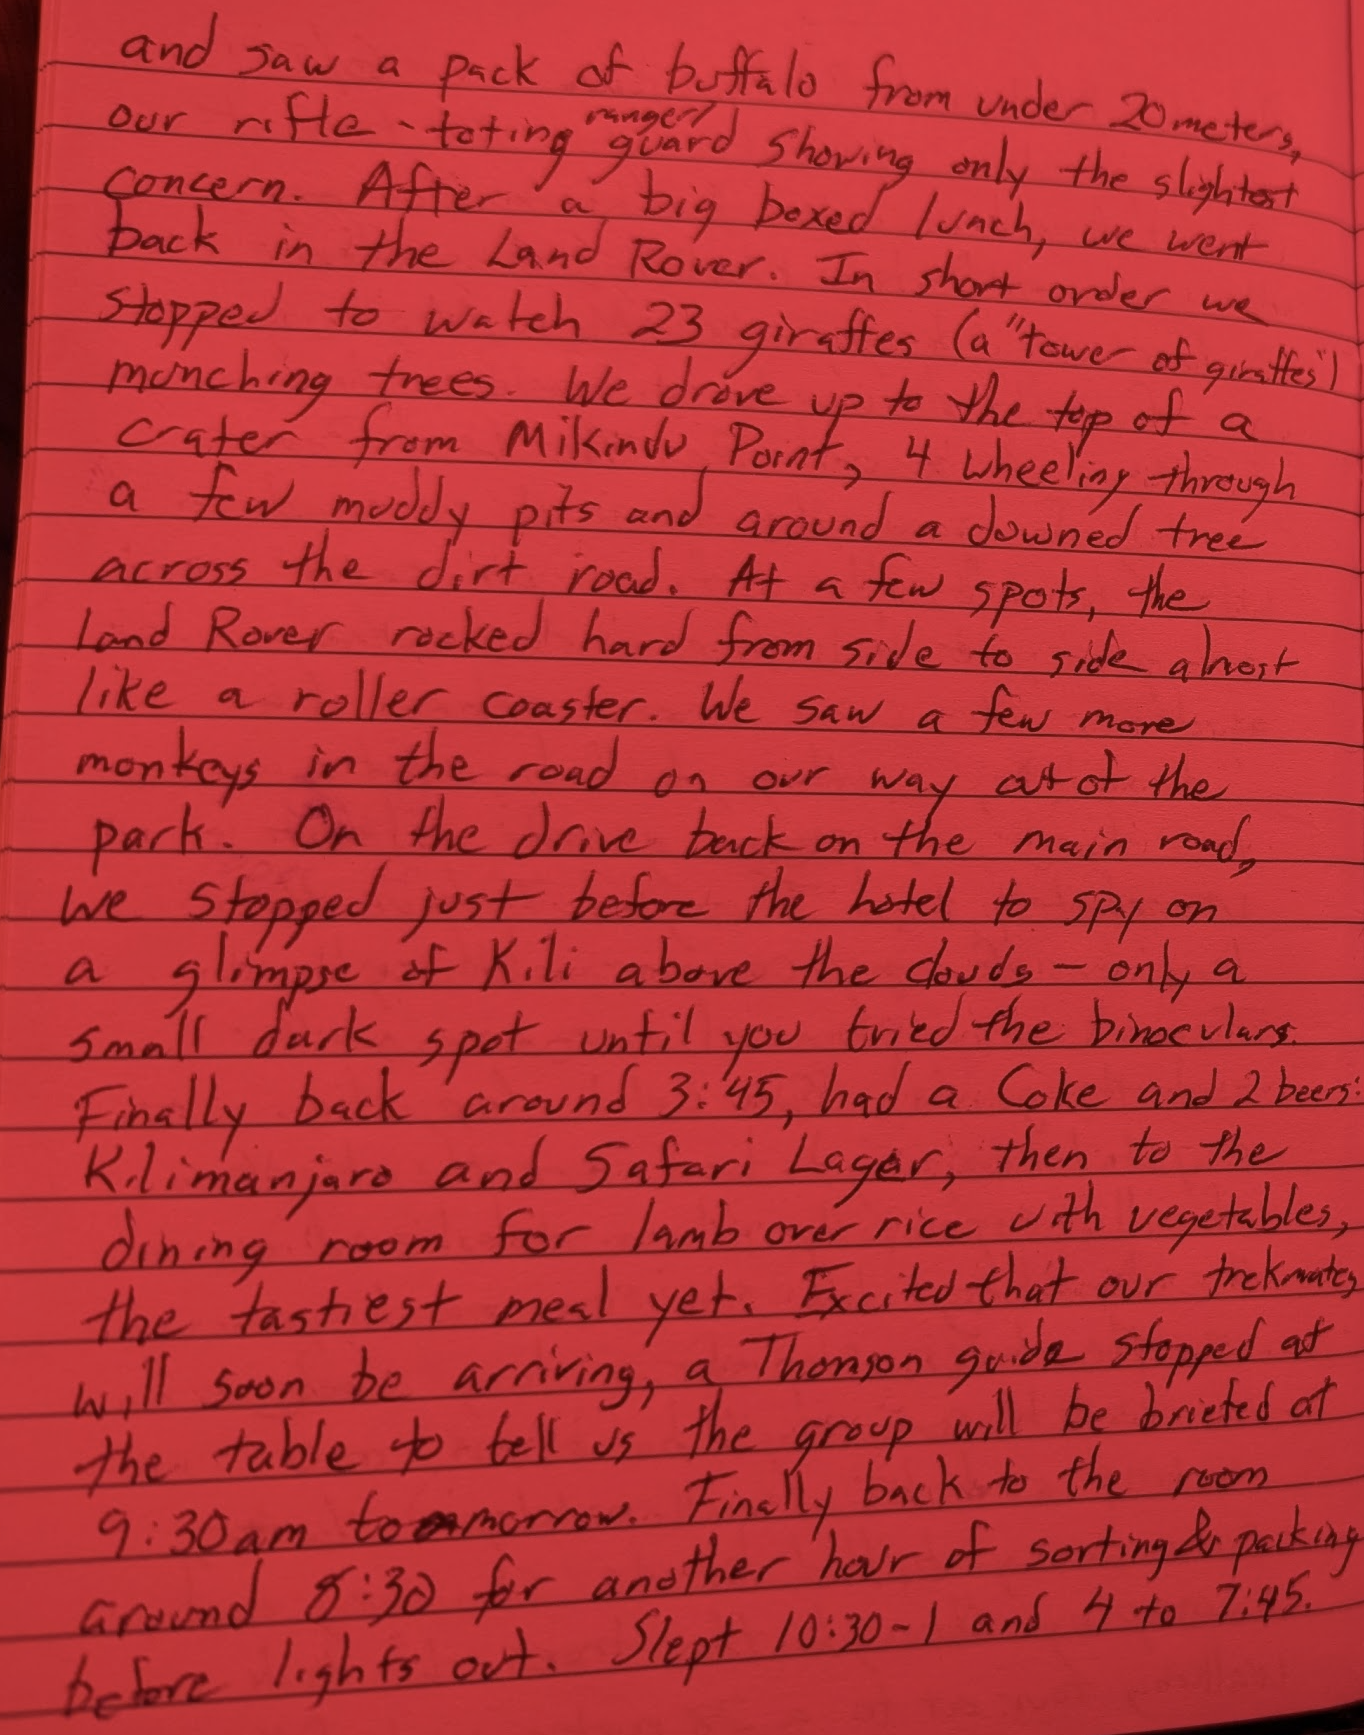 and saw a pack of buffalo from under 20 meters,
our rifle-toting ranger/guard showing only the slightest
concern. After a big boxed lunch, we went
back in the Land Rover. In short order we
stopped to watch 23 giraffes (a "tower of giraffes")
munching trees. We drove up to the top of a
crater from Mikindu Point, 4 wheeling through
a few muddy pits and around a downed tree
across the dirt road. At a few spots, the
Land Rover rocked hard from side to side almost
like a roller coaster. We saw a few more
monkeys in the road on our way out of the
park. On the drive back on the main road,
we stopped just before the hotel to spy on
a glimpse of Kili above the clouds - only a
small dark spot until you tried the binoculars.
Finally back around 3:45, had a Coke and 2 beers:
Kilimanjaro and Safari Lager, then to the
dining room for lamb over rice with vegetables,
the tastiest meal yet. Excited that our trekmates
will soon be arriving, a Thomson guide stopped at
the table to tell us the group will be briefed at
9:30am tomorrow. Finally back to the room
around 8:30 for another hour of sorting & packing
before lights out. Slept 10:30-1 and 4 to 7:45.